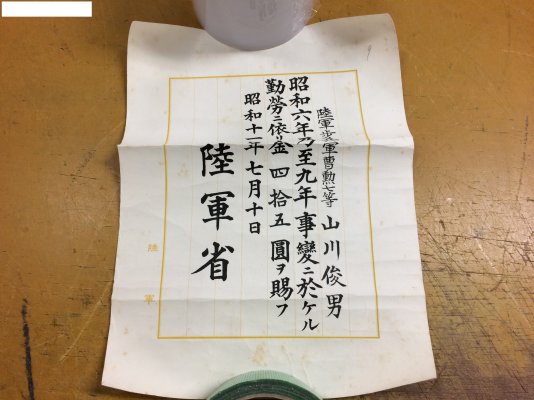 陸軍歩兵軍曹勲七等 山川俊男
昭和六年乃至九年事變ニ於ケル
勤勞ニ依リ金四拾五圓ヲ賜フ
昭和十一年七月十日
陸軍省
陸軍